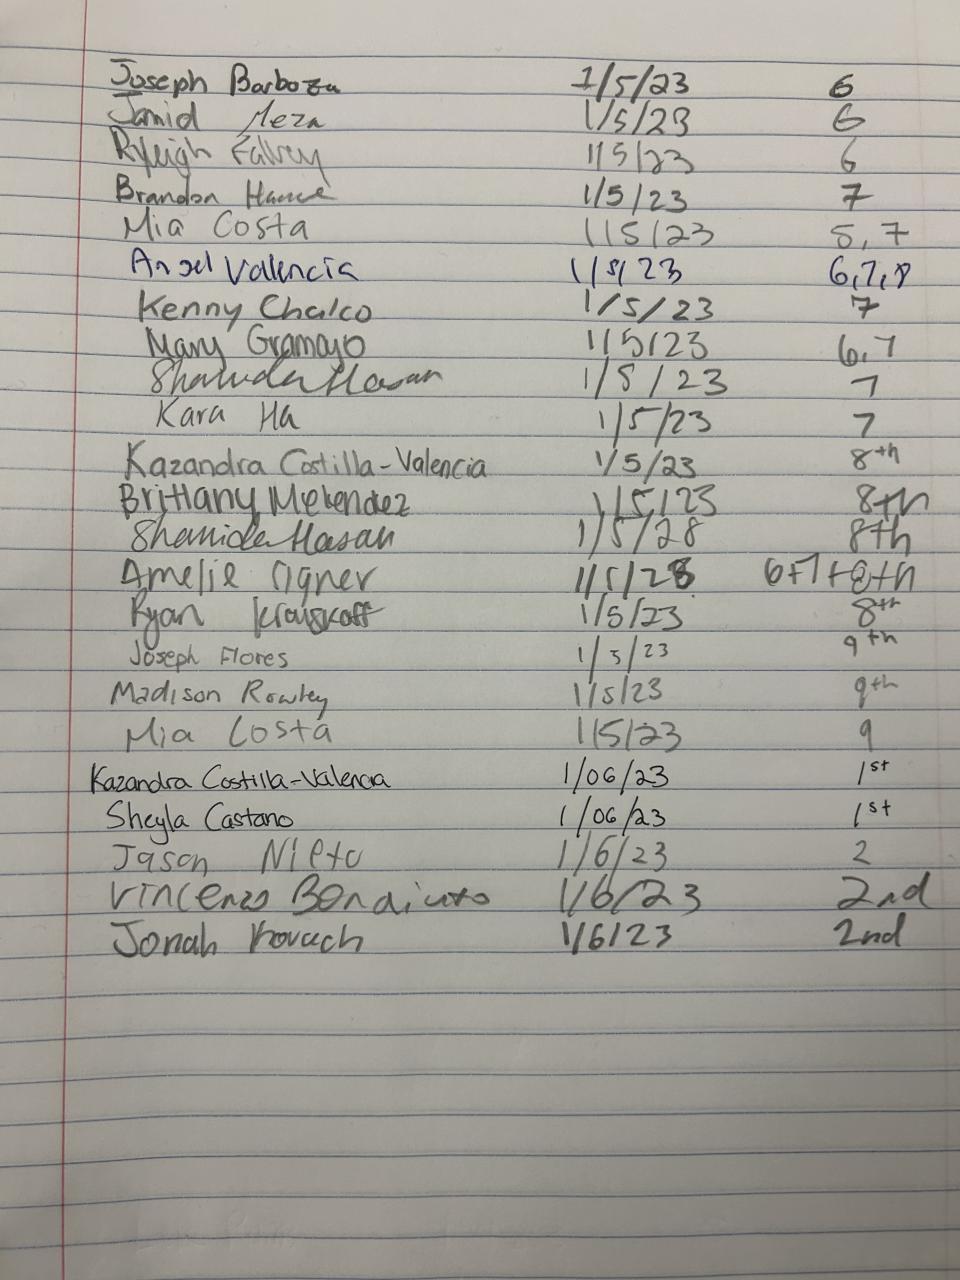 Joseph Barboza 1/5/23 6
Jamid Meza 1/5/23 6
Ryleigh 1/5/23 6
Brandon 1/5/23 7
Mia Costa 1/5/23 5,7
Angel Valencia 1/5/23 6,7,8
Kenny Chalco 1/5/23 7
Mary Gramayo 1/5/23 6,7
Shanida Hasan 1/5/23 7
Kara Ha 1/5/23 7
Kazandra Costilla-Valencia 1/5/23 8th
Brittany Melendez 1/5/23 8th
Shanida Hasan 1/5/28 8th
Amelie Signer 1/5/23 6+7+8th
Ryan 1/5/23 8th
Joseph Flores 1/5/23 9th
Madison Rowley 1/5/23 9th
Mia Costa 1/5/23 9
Kazandra Costilla-Valencia 1/06/23 1st
Sheyla Castano 1/06/23 1st
Jason Nieto 1/6/23 2
Vincenzo 1/6/23 2nd
Jonah Kovach 1/6/23 2nd